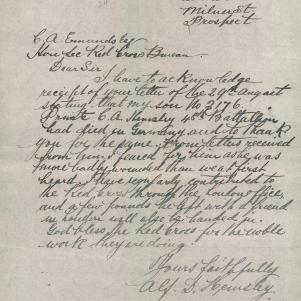 Milner St
Prospect
C A Edmunds Esq
Hon Sec Red Cross Bureau
Dear Sir
I have to acknowledge
receipt of your letter of the 29th August
stating that my son No 3176.
Private C A Hemsley 48th Battalion
had died in Germany, and to thank
you for the same. From letters received
from him, I feared for him as he was
more badly wounded than we at first
heard. I have regularly contributed to
the Red Cross through the London office,
and a few pounds he left with a friend
in London will also be handed in.
God bless the Red Cross for the noble
work they are doing.
Yours faithfully
Alf. S. Hemsley